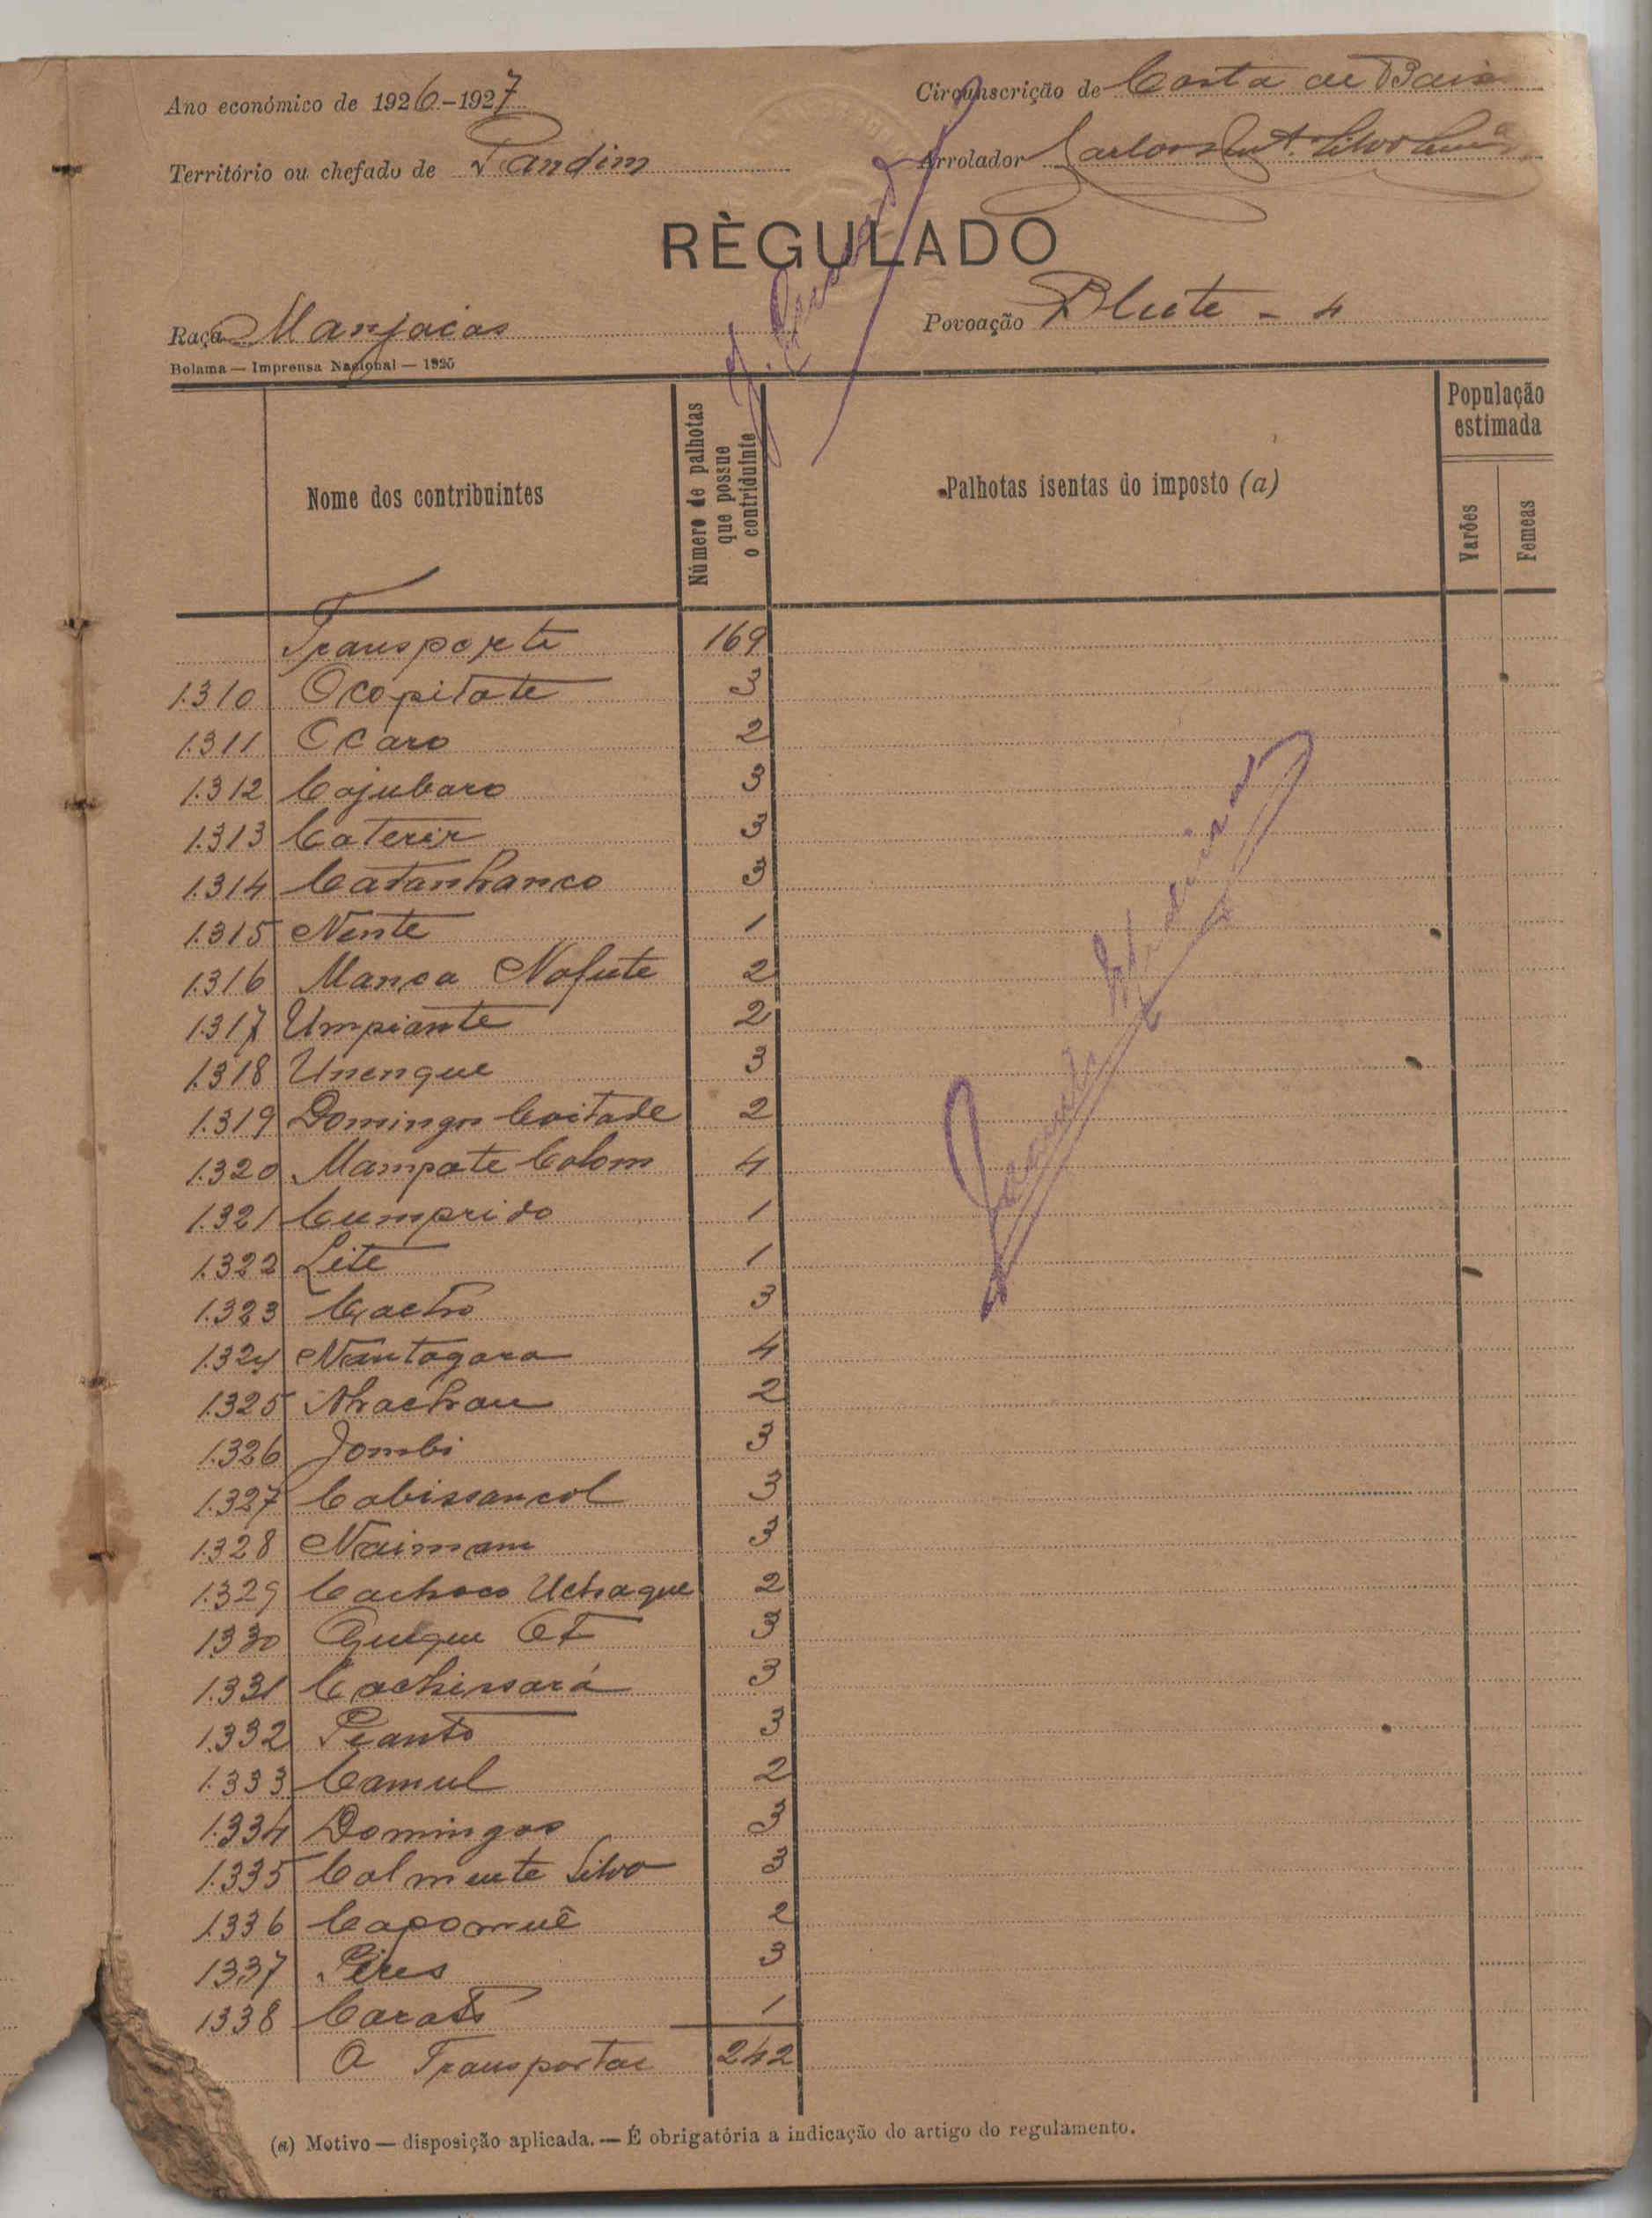 Ano económico de 1926-1927
Circunscrição de Costa de Baixo
Território ou chefado de Pandim
Arrolador Carlos A. Silva
RÈGULADO
Raça Manjacas
Povoação Blute - 4
Bolama — Imprensa Nacional — 1925
Nome dos contribuintes
Número de palhotas que possue o contriduinte
Palhotas isentas do imposto (a)
População estimada
Varões
Femeas
Transporte 169
1.310 Ocopitate 3
1.311 Ocaro 2
1.312 Cajubaro 3
1.313 Caterir 3
1.314 Catanhanco 3
1.315 Nente 1
1.316 Manca Nafute 2
1.317 Umpiante 2
1.318 Unengue 3
1.319 Domingos Coitade 2
1.320 Mampate Colom 4
1.321 Cumprido 1
1.322 Lite 1
1.323 Castro 3
1.324 Nantagara 4
1.325 Nhachau 2
1.326 Jombi 3
1.327 Cabissancol 3
1.328 Naimam 3
1.329 Cachoco Uchaque 2
1330 Quique 3
1.331 Cachinsará 3
1.332 Pianto 3
1.333 Camul 2
1.334 Domingos 3
1.335 Calmeute Silva 3
1.336 Capomuê 2
1337 Pires 3
1.338 Carato 1
A Transportar 242
(a) Motivo — disposição aplicada. — É obrigatória a indicação do artigo do regulamento.